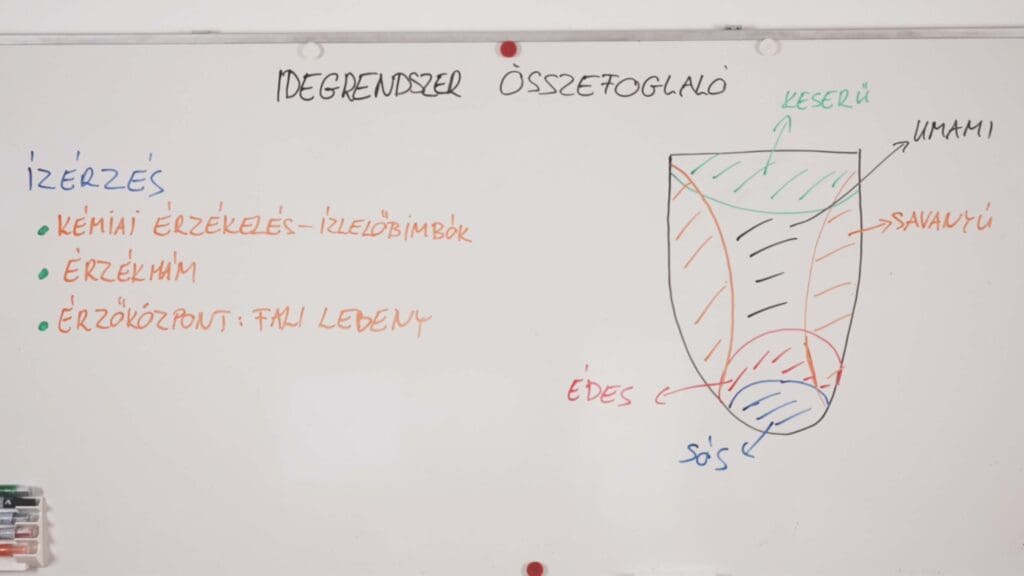 IDEGRENDSZER ÖSSZEFOGLALÓ
ÍZÉRZÉS
• KÉMIAI ÉRZÉKELÉS – ÍZLELŐBIMBÓK
• ÉRZÉKHÁM
• ÉRZŐKÖZPONT: FALI LEBENY
KESERŰ
UMAMI
SAVANYÚ
ÉDES
SÓS